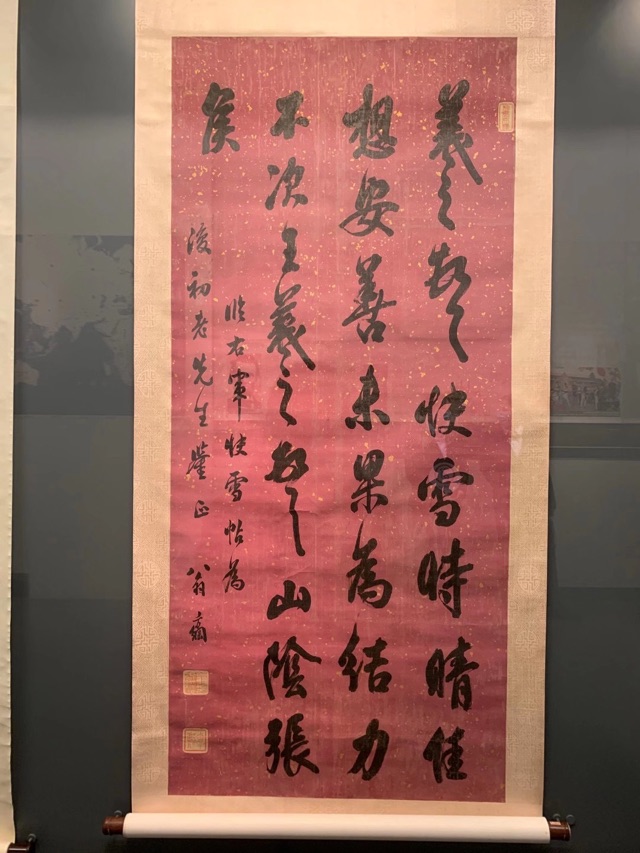 羲之頓首快雪時晴佳
想安善未果為結力
不次王羲之頓首山陰張
侯
臨右軍快雪帖為
浚初老先生鑒正 翁